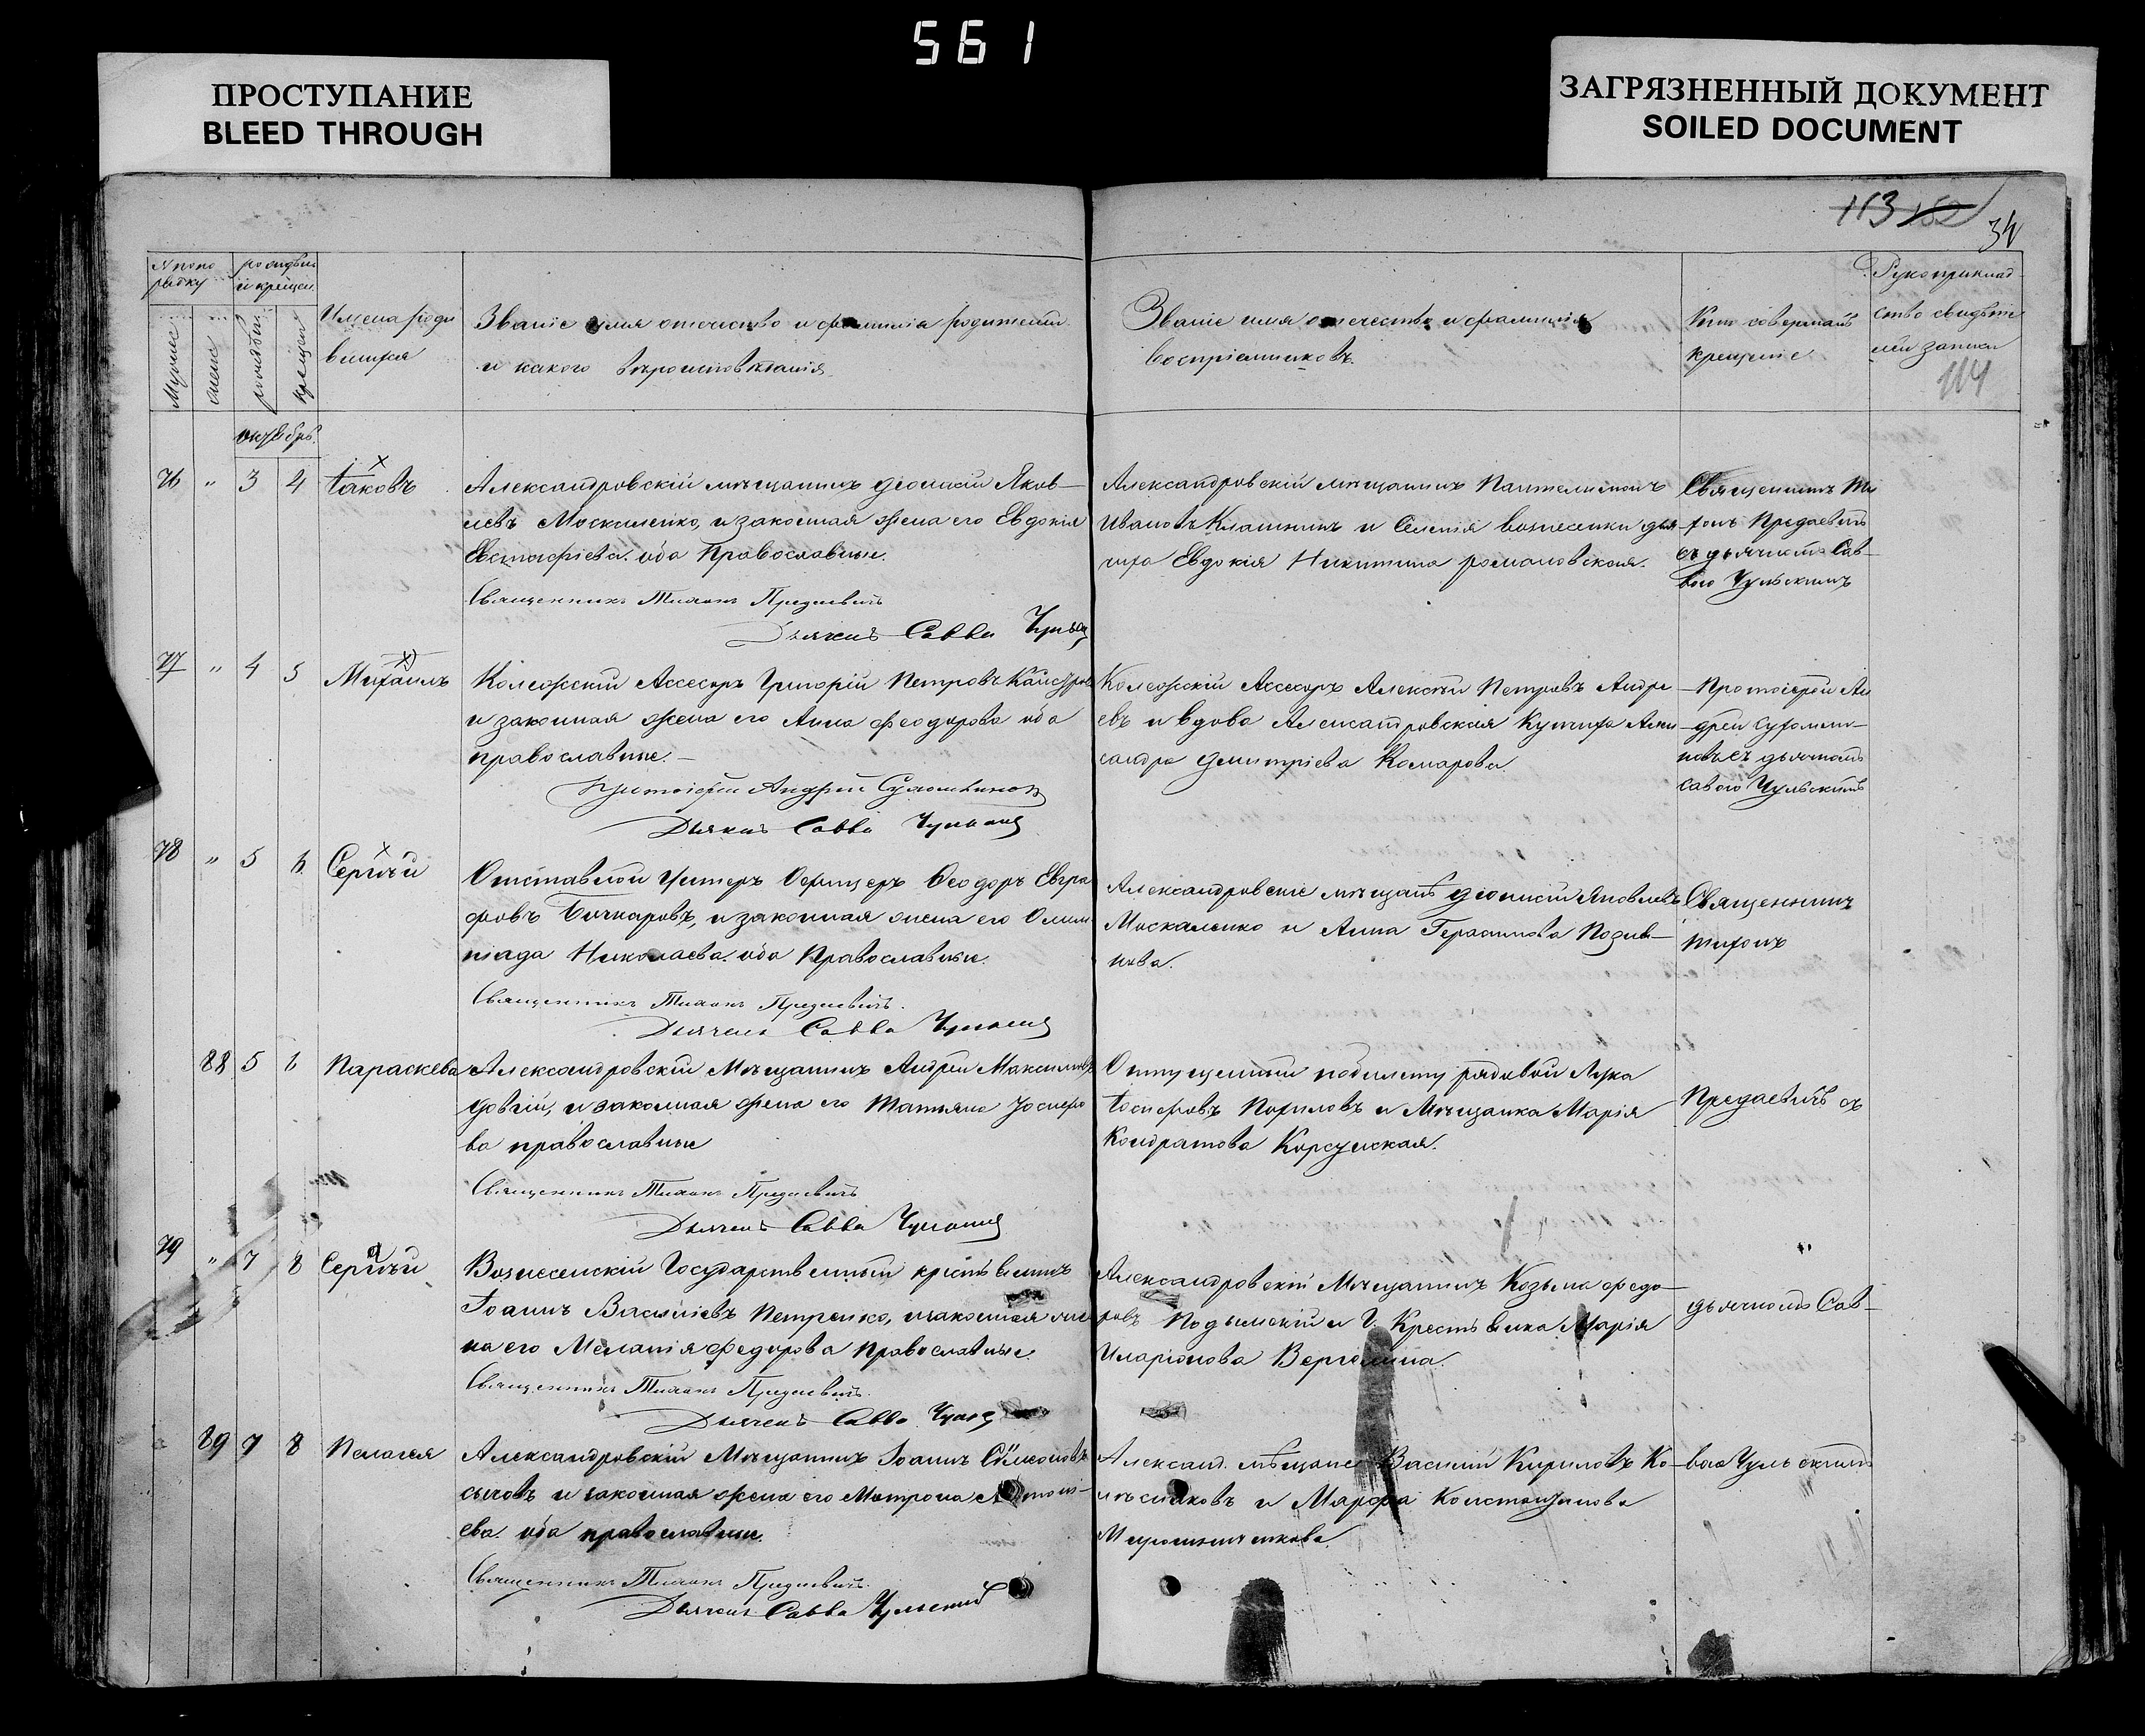 561
ПРОСТУПАНИЕ
BLEED THROUGH
ЗАГРЯЗНЕННЫЙ ДОКУМЕНТ
SOILED DOCUMENT
113 152
34
114
Мужеска
женска
рожденія
крещен
Имена роди
вшихся
Званіе имя отечество и фамилія родителей
и какого вѣроисповѣданія
Званіе имя отечество и фамилія
воспріемниковъ.
Кто совершалъ
крещеніе
Рукоприклад
ство свидѣте
лей записи
октябрь.
76 " 3 4 Іаковъ
Александровскій мѣщанинъ Діонисій Яков-
левъ Москаленко, и законная жена его Евдокія
Евстафіева. оба Православные.
Священникъ Тихонъ Предаевичъ
Дьячекъ Савва
Александровскій мѣщанинъ Пантелимонъ
Ивановъ и Селенія вознесенки дья
чиха Евдокія Никитина романовская.
Священникъ Ти
хонъ Предаевичъ
съ дьячкомъ Сав-
вою Чульскимъ
77 " 4 5 Михаилъ
Колежскій Ассесоръ Григорій Петровъ
и законная жена его Анна Феодорова оба
православные.
Протоіерей Андрей Сухомлиновъ
Дьячекъ Савва
Колежскій Ассесоръ Алексѣй Петровъ Андре
евъ и вдова Александровская Купчиха Алек
сандра Дмитріева Комарова.
Протоіерей Ан
дрей Сухомли-
новъ съ дьячкомъ
Саввою Чульскимъ
78 " 5 6 Сергій
Отставной Унтеръ Офицеръ Феодоръ Евгра
фовъ Бочкаровъ, и законная жена его Олим
піада Николаева. оба Православные.
Священникъ Тихонъ Предаевичъ.
Дьячекъ Савва
Александровскіе мѣщане Діонисій Яковлевъ
Москаленко и Анна Герасимова Позив-
нова.
Священникъ
Тихонъ
88 5 6 Параскева
Александровскій Мѣщанинъ Андрей Максимовъ
Довгій, и законная жена его Татьяна Іосифо
ва православные
Священникъ Тихонъ Предаевичъ
Дьячекъ Савва
Отпущенный по билету рядовой Лука
Іосифовъ и Мѣщанка Марія
Кондратова Корсунская.
Предаевичъ съ
79 " 7 8 Сергій
Вознесенскій Государственный крестьянинъ
Іоаннъ Васильевъ Петренко, и законная же
на его Меланія Федорова Православные.
Священникъ Тихонъ Предаевичъ.
Дьячекъ Савва
Александровскій Мѣщанинъ Козьма Федо-
ровъ Подымскій и Г. Крестьянка Марія
Иларіонова
дьячкомъ Сав-
89 7 8 Пелагея
Александровскій Мѣщанинъ Іоаннъ Симеоновъ
и законная жена его Матрона
ева. оба православные.
Священникъ Тихонъ Предаевичъ.
Дьячекъ Савва Чульский
Александ. мѣщане Василій Кириловъ Ко-
лѣсниковъ и Марфа Константинова
Мирошниченкова
вою Чульскимъ